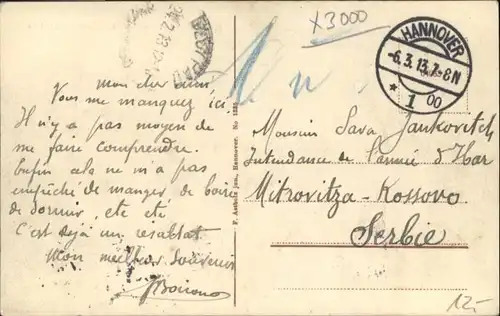 x3000
БЕОГРАД
HANNOVER
-6.3.13.7-8N
* 1 00
mon cher ami,
Vous me manquez ici.
Il n'y a pas moyen de
me faire comprendre.
Enfin cela ne m'a pas
empêché de manger, de boire
de dormir, etc etc
C'est déjà un résultat
Mon meilleur souvenir
F. Astholz jun., Hannover. No
Monsieur Sava Jankovitch
Intendance de l'armée d'
Mitrovitza-Kossovo
Serbie
12.-